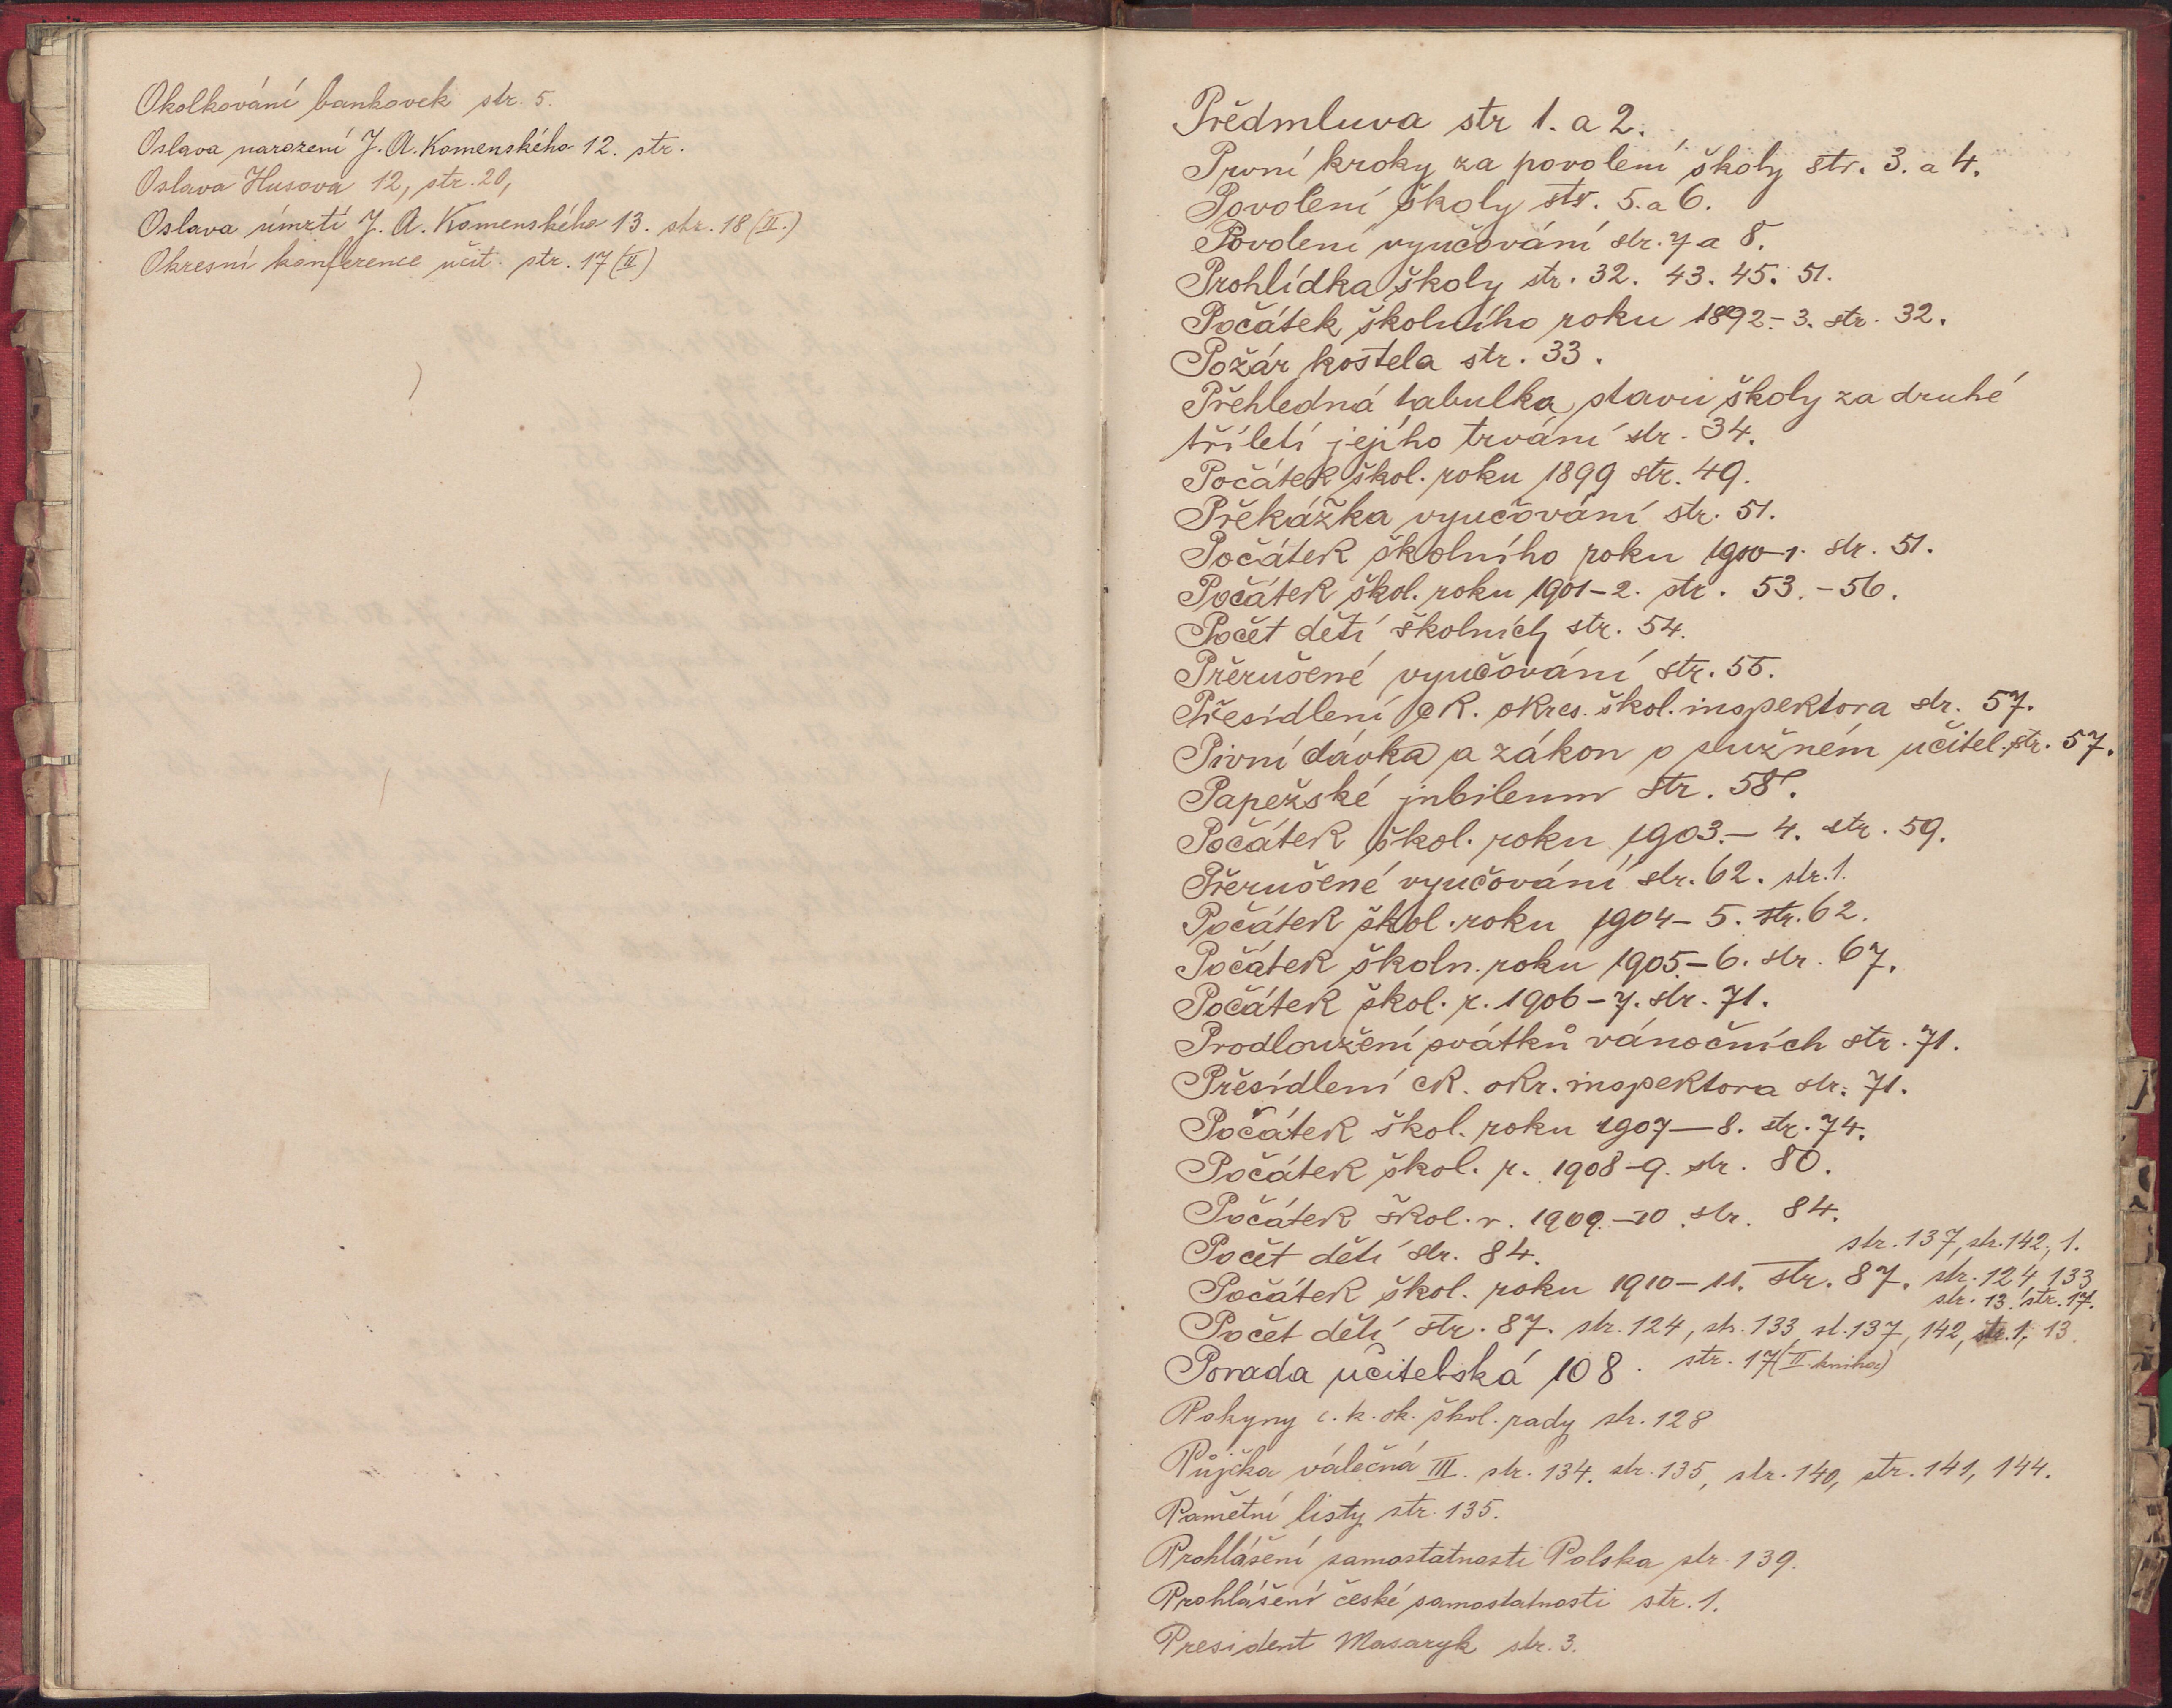 Okolkování bankovek str. 5.
Oslava narození J. A. Komenského 12. str.
Oslava Husova 12, str. 20,
Oslava úmrtí J. A. Komenského 13. str. 18 (II.)
Okresní konference učit. str. 17 (II)
Předmluva str 1. a 2.
První kroky za povolení školy str. 3. a 4.
Povolení školy str. 5. a 6.
Povolení vyučování str. 7 a 8.
Prohlídka školy str. 32. 43. 45. 51.
Počátek školního roku 1892.-3. str. 32.
Požár kostela str. 33.
Přehledná tabulka stavu školy za druhé
tříletí jejího trvání str. 34.
Počátek škol. roku 1899 str. 49.
Překážka vyučování str. 51.
Počátek školního roku 1900-1. str. 51.
Počátek škol. roku 1901-2. str. 53.-56.
Počet dětí školních str. 54.
Přerušené vyučování str. 55.
Přesídlení ck. okres. škol. inspektora str. 57.
Pivní dávka a zákon o služném učitel. str. 57.
Papežské jubileum str. 58.
Počátek škol. roku 1903.-4. str. 59.
Přerušené vyučování str. 62. str. 1.
Počátek škol. roku 1904-5. str. 62.
Počátek školn. roku 1905.-6. str. 67.
Počátek škol. r. 1906-7. str. 71.
Prodloužení svátků vánočních str. 71.
Přesídlení ck. okr. inspektora str. 71.
Počátek škol. roku 1907-8. str. 74.
Počátek škol. r. 1908-9. str. 80.
Počátek škol. r. 1909.-10. str. 84.
Počet dětí str. 84.
str. 137, str. 142., 1.
Počátek škol. roku 1910-11. str. 87. str. 124, 133
str. 13. str. 17.
Počet dětí str. 87. str. 124, str. 133, st. 137, 142, str. 1, 13.
Porada učitelská 108. str. 17 (II. kniha)
Pokyny c. k. ok. škol. rady str. 128
Půjčka válečná III. str. 134. str. 135, str. 140, str. 141, 144.
Pamětní listy str. 135.
Prohlášení samostatnosti Polska str. 139.
Prohlášení české samostatnosti str. 1.
President Masaryk str. 3.